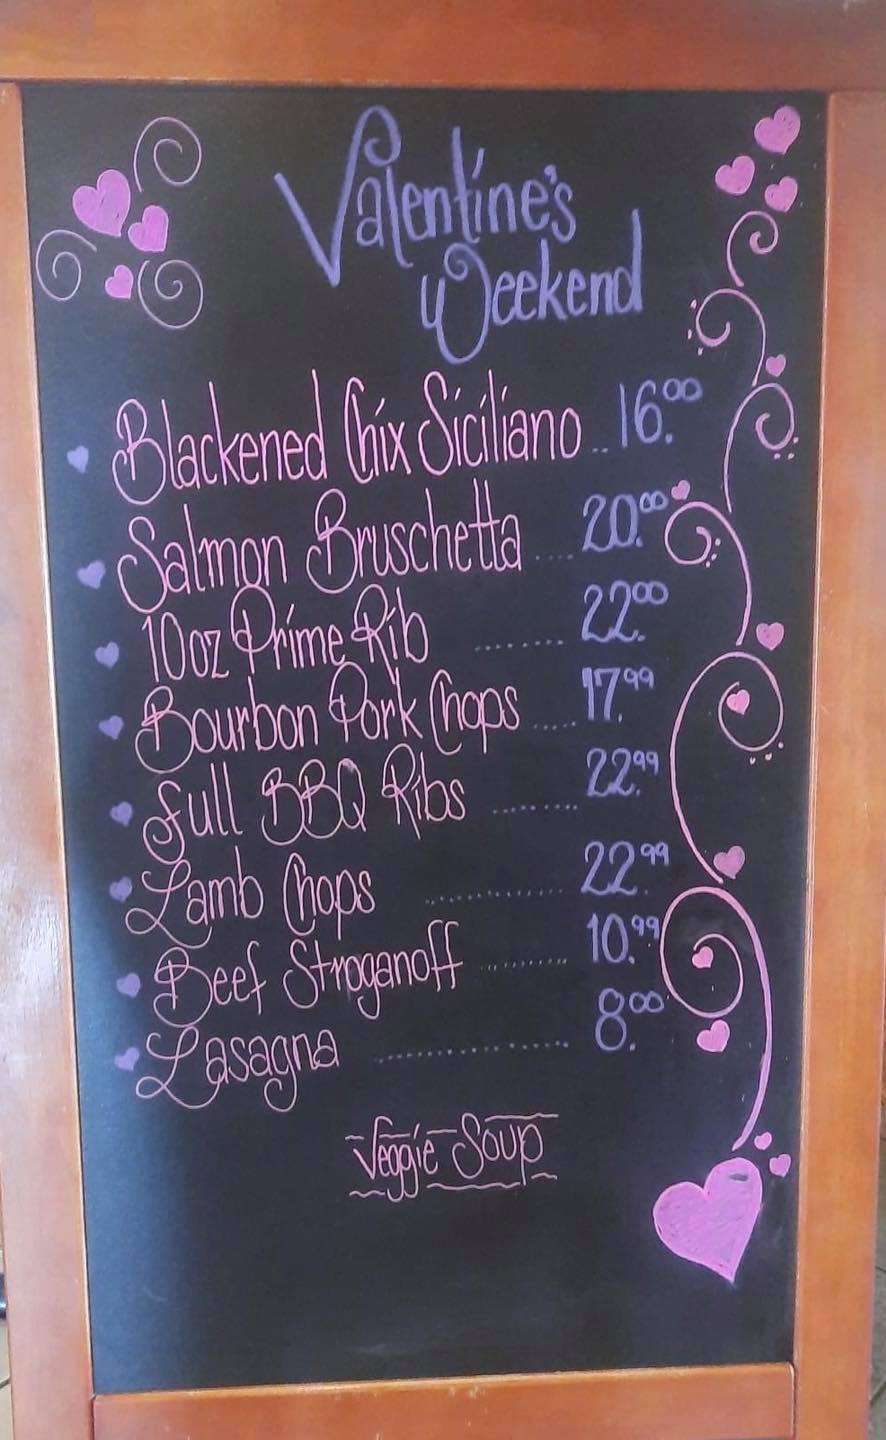 Valentine's
Weekend
Blackened Chix Siciliano .. 16.00
Salmon Bruschetta .... 20.00
10oz Prime Rib ....... 22.00
Bourbon Pork Chops .... 17.99
Full BBQ Ribs ....... 22.99
Lamb Chops ............ 22.99
Beef Stroganoff ......... 10.99
Lasagna ................ 8.00
Veggie Soup